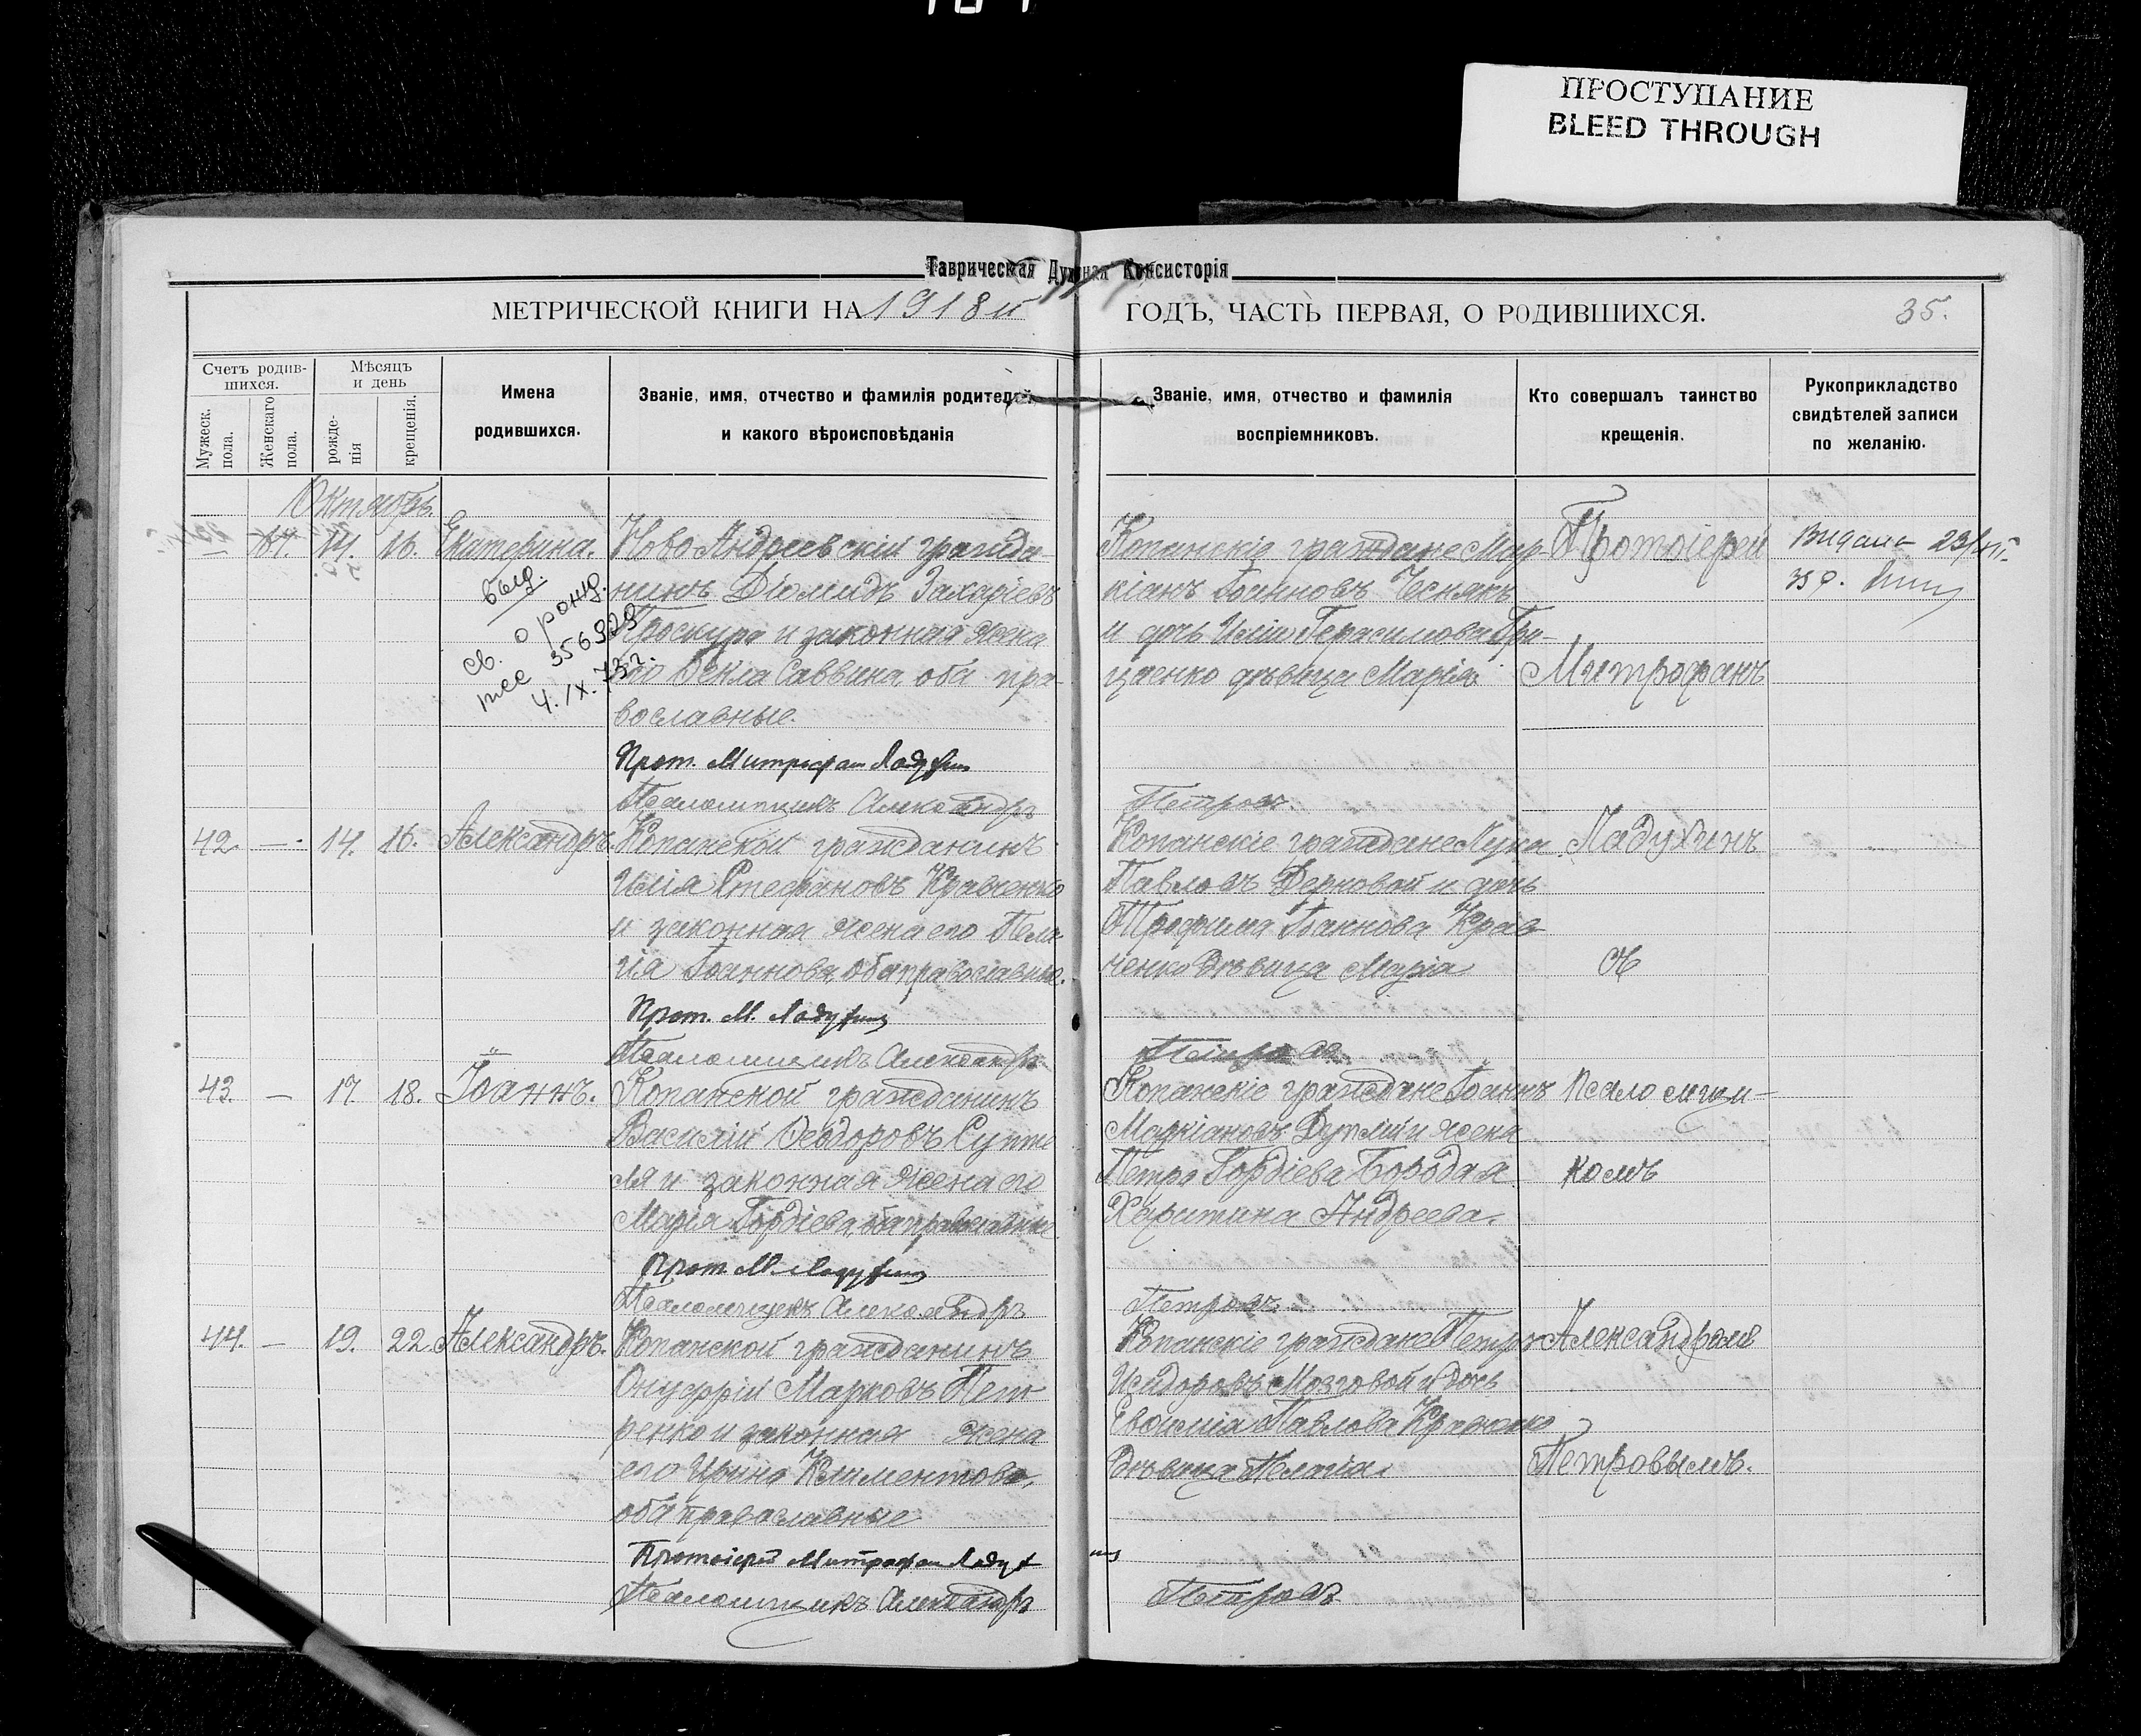 ПРОСТУПАНИЕ
BLEED THROUGH
Таврическая Духовная Консисторія
МЕТРИЧЕСКОЙ КНИГИ НА 1918 й ГОДЪ, ЧАСТЬ ПЕРВАЯ, О РОДИВШИХСЯ.
35.
Счетъ родив-
шихся.
Мужеск.
пола.
Женскаго
пола.
Мѣсяцъ
и день
рожде-
нія
крещенія.
Имена
родившихся.
Званіе, имя, отчество и фамилія родителей,
и какого вѣроисповѣданія
Званіе, имя, отчество и фамилія
воспріемниковъ.
Кто совершалъ таинство
крещенія.
Рукоприкладство
свидѣтелей записи
по желанію.
Октябрь.
14. 16. Екатерина.
выд.
св. о рожд.
356929
4. IX. 73 г.
Ново Андреевскій гражда-
нинъ Діомидъ Захаріевъ
Проскура и законная жена
его Ѳекла Саввина, оба пра-
вославные.
Прот. Митрофан Ладухин
Псаломщикъ Александръ
Петровъ.
Копанскіе граждане Мар-
кіанъ Іоанновъ Чеснякъ
и дочь Иліи Герасимова Гри-
ценко дѣвица Марія.
42. — 14. 16. Александръ.
Копанской гражданинъ
Илія Стефановъ Кравченко
и законная жена его Пела-
гія Іоаннова, оба православные.
Прот. М. Ладухин
Псаломщикъ Александръ
Петровъ.
Копанскіе граждане Лука
Павловъ Дерковой и дочь
Трофима Іоаннова Крав-
ченко Дѣвица Марія
43. — 17. 18. Іоаннъ.
Копанской гражданинъ
Василій Ѳеодоровъ Супте
ля и законная жена его
Марія Гордіева, оба православные.
Прот. М. Ладухин
Псаломщикъ Александръ
Петровъ.
Копанскіе граждане Іоаннъ
Маркіановъ Дутлій и жена
Петра Гордіева Бородая
Харитина Андреева.
44. — 19. 22. Александръ.
Копанской гражданинъ
Онуфрій Марковъ Пет-
ренко и законная жена
его Ирина Климентова,
оба православные
Протоіерей Митрофан Ладух
ин
Псаломщикъ Александръ
Петровъ
Копанскіе граждане Петръ
Исидоровъ Мозговой и дочь
Евѳимія Павлова Кравченко
Дѣвица Пелагія.
Протоіерей
Митрофанъ
Ладухинъ
съ
Псаломщи-
комъ
Александромъ
Петровымъ.